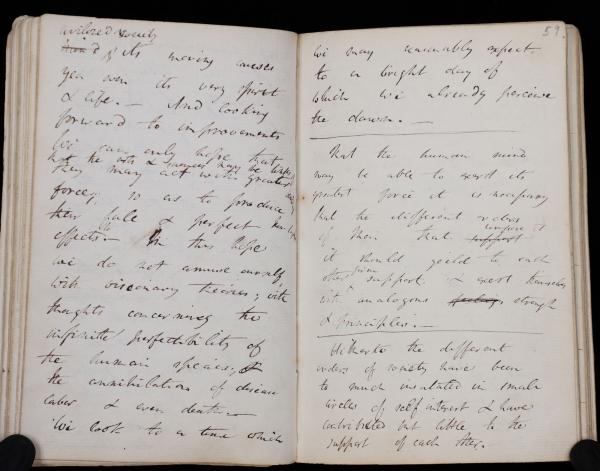 civilized society
its moving causes
yea even its very spirit
& life. — And looking
forward to improvements
We can only hope that
not the arts & sciences may be
they may act with greatest
force, so as to produce
their full & perfect
effects — In this hope
we do not amuse ourselves
with visionary theories; with
thoughts concerning the
infinite perfectibility of
the human species,
the annihilation of disease
labor & even death —
We look to a time which
59.
we may reasonably expect.
to a bright day of
which we already perceive
the dawn. —
That the human mind
may be able to exert its
greatest force it is necessary
that the different orders
of Men that compose it
it should yield to each
other firm support & exert themselves
with analogous strength
& principles. —
Hitherto the different
orders of society have been
to much insulated in small
circles of self interest & have
contributed but little to the
support of each other.